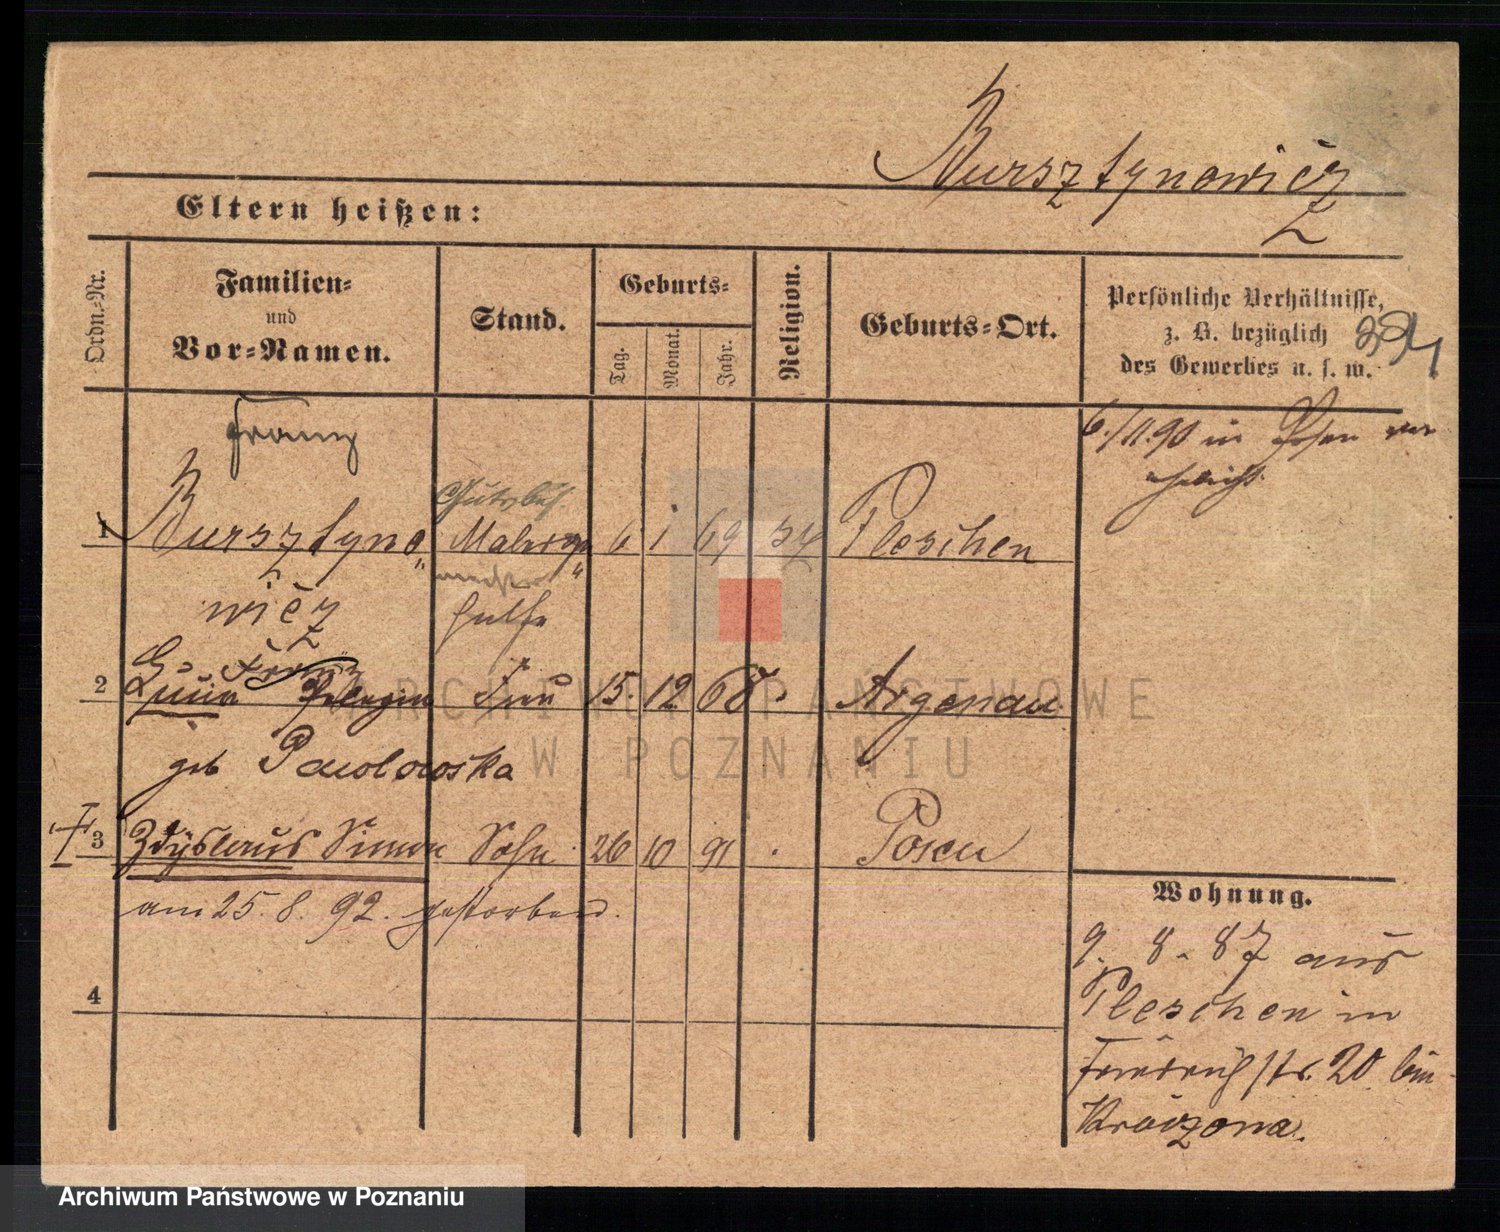 Bursztynowicz
Eltern heißen:
Ordn.-Nr.
Familien-
und
Vor-Namen.
Stand.
Geburts-
Tag.
Monat.
Jahr.
Religion.
Geburts-Ort.
Persönliche Verhältnisse,
z. B. bezüglich
des Gewerbes u. s. w.
Franz
6./11.90 in Posen ver
ehelicht.
1 Bursztyno 6 1 69 Pleschen
meister
wicz
gülfe
2 Pelagia Frau 15. 12 68. Argenau
geb Pawlowska
3 Zdyslaus Simon Sohn 26 10 91 . Posen
am 25. 8. 92. gestorben.
4
Wohnung.
9. 8. 87 aus
Pleschen in
Friedrichstr. 20 bei
ARCHIWUM PAŃSTWOWE
W POZNANIU
Archiwum Państwowe w Poznaniu